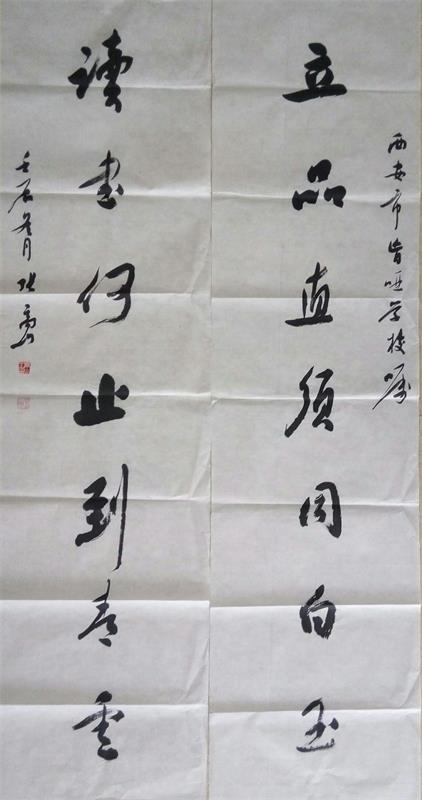 西安市盲哑学校嘱
立品直须同白玉
读書何止到青雲
壬辰冬月